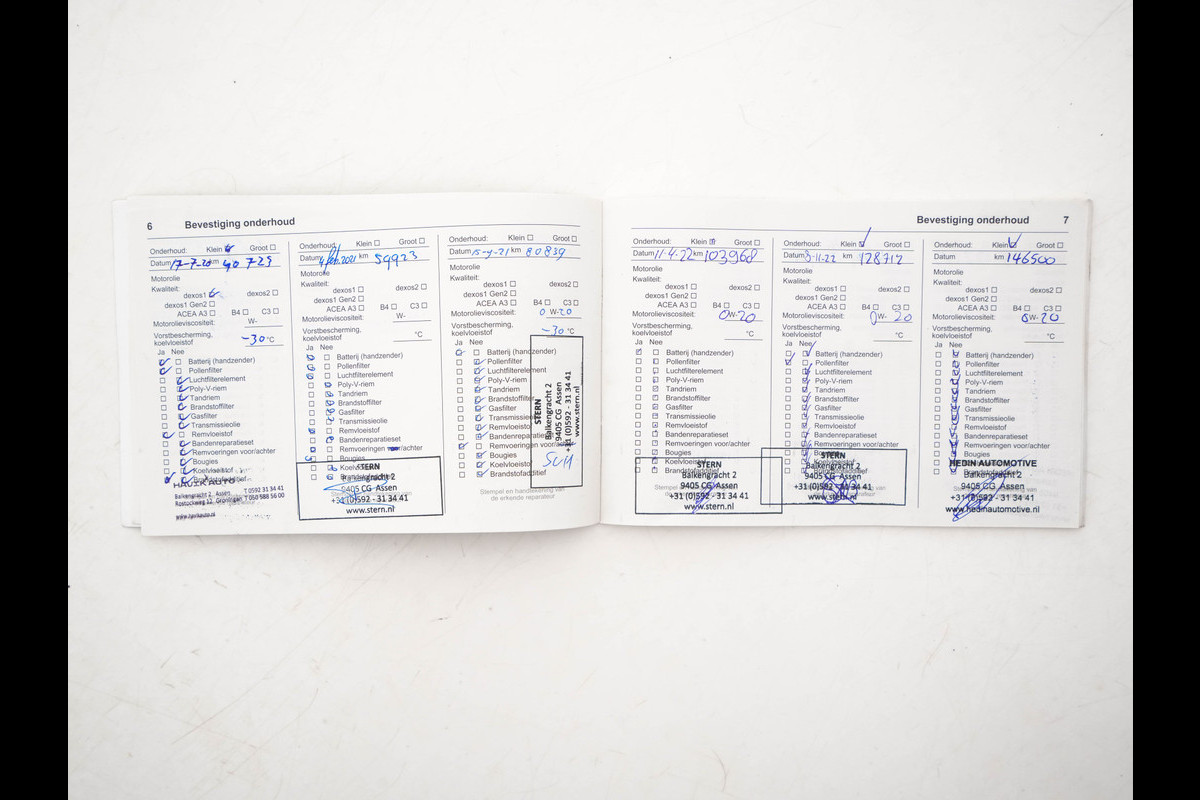 6 Bevestiging onderhoud
Onderhoud: Klein Groot
Datum 17-7-20 km 40 729
Motorolie
Kwaliteit:
dexos1 dexos2
dexos1 Gen2
ACEA A3 B4 C3
Motorolieviscositeit: W-
Vorstbescherming,
koelvloeistof -30 °C
Ja Nee
Batterij (handzender)
Pollenfilter
Luchtfilterelement
Poly-V-riem
Tandriem
Brandstoffilter
Gasfilter
Transmissieolie
Remvloeistof
Bandenreparatieset
Remvoeringen voor/achter
Bougies
Koelvloeistof
Brandstofadditief
Balkengracht 2, Assen T 0592 31 34 41
Rostockweg 12, Groningen T 050 588 56 00
Onderhoud: Klein Groot
Datum 4 feb. 2021 km 59923
Motorolie
Kwaliteit:
dexos1 dexos2
dexos1 Gen2
ACEA A3 B4 C3
Motorolieviscositeit: W-
Vorstbescherming,
koelvloeistof °C
Ja Nee
Batterij (handzender)
Pollenfilter
Luchtfilterelement
Poly-V-riem
Tandriem
Brandstoffilter
Gasfilter
Transmissieolie
Remvloeistof
Bandenreparatieset
Remvoeringen voor/achter
Bougies
Koelvloeistof
Brandstofadditief
STERN
Balkengracht 2
9405 CG Assen
+31 (0)592 - 31 34 41
www.stern.nl
Onderhoud: Klein Groot
Datum 15-4-21 km 80839
Motorolie
Kwaliteit:
dexos1 dexos2
dexos1 Gen2
ACEA A3 B4 C3
Motorolieviscositeit: 0 W-20
Vorstbescherming,
koelvloeistof -30 °C
Ja Nee
Batterij (handzender)
Pollenfilter
Luchtfilterelement
Poly-V-riem
Tandriem
Brandstoffilter
Gasfilter
Transmissieolie
Remvloeistof
Bandenreparatieset
Remvoeringen voor/achter
Bougies
Koelvloeistof
Brandstofadditief
Stempel en handtekening van
de erkende reparateur
STERN
Balkengracht 2
9405 CG Assen
+31 (0)592 - 31 34 41
www.stern.nl
Bevestiging onderhoud 7
Onderhoud: Klein Groot
Datum 11-4-22 km 103968
Motorolie
Kwaliteit:
dexos1 dexos2
dexos1 Gen2
ACEA A3 B4 C3
Motorolieviscositeit: 0W-20
Vorstbescherming,
koelvloeistof °C
Ja Nee
Batterij (handzender)
Pollenfilter
Luchtfilterelement
Poly-V-riem
Tandriem
Brandstoffilter
Gasfilter
Transmissieolie
Remvloeistof
Bandenreparatieset
Remvoeringen voor/achter
Bougies
Koelvloeistof
Brandstofadditief
STERN
Balkengracht 2
9405 CG Assen
+31 (0)592 - 31 34 41
www.stern.nl
Onderhoud: Klein Groot
Datum 8-11-22 km 128712
Motorolie
Kwaliteit:
dexos1 dexos2
dexos1 Gen2
ACEA A3 B4 C3
Motorolieviscositeit: 0W-20
Vorstbescherming,
koelvloeistof °C
Ja Nee
Batterij (handzender)
Pollenfilter
Luchtfilterelement
Poly-V-riem
Tandriem
Brandstoffilter
Gasfilter
Transmissieolie
Remvloeistof
Bandenreparatieset
Remvoeringen voor/achter
Bougies
Koelvloeistof
Brandstofadditief
STERN
Balkengracht 2
9405 CG Assen
+31 (0)592 - 31 34 41
www.stern.nl
Onderhoud: Klein Groot
Datum km 146500
Motorolie
Kwaliteit:
dexos1 dexos2
dexos1 Gen2
ACEA A3 B4 C3
Motorolieviscositeit: 0W-20
Vorstbescherming,
koelvloeistof °C
Ja Nee
Batterij (handzender)
Pollenfilter
Luchtfilterelement
Poly-V-riem
Tandriem
Brandstoffilter
Gasfilter
Transmissieolie
Remvloeistof
Bandenreparatieset
Remvoeringen voor/achter
Bougies
HEDIN AUTOMOTIVE
Balkengracht 2
9405 CG Assen
+31 (0)592 - 31 34 41
www.hedinautomotive.nl